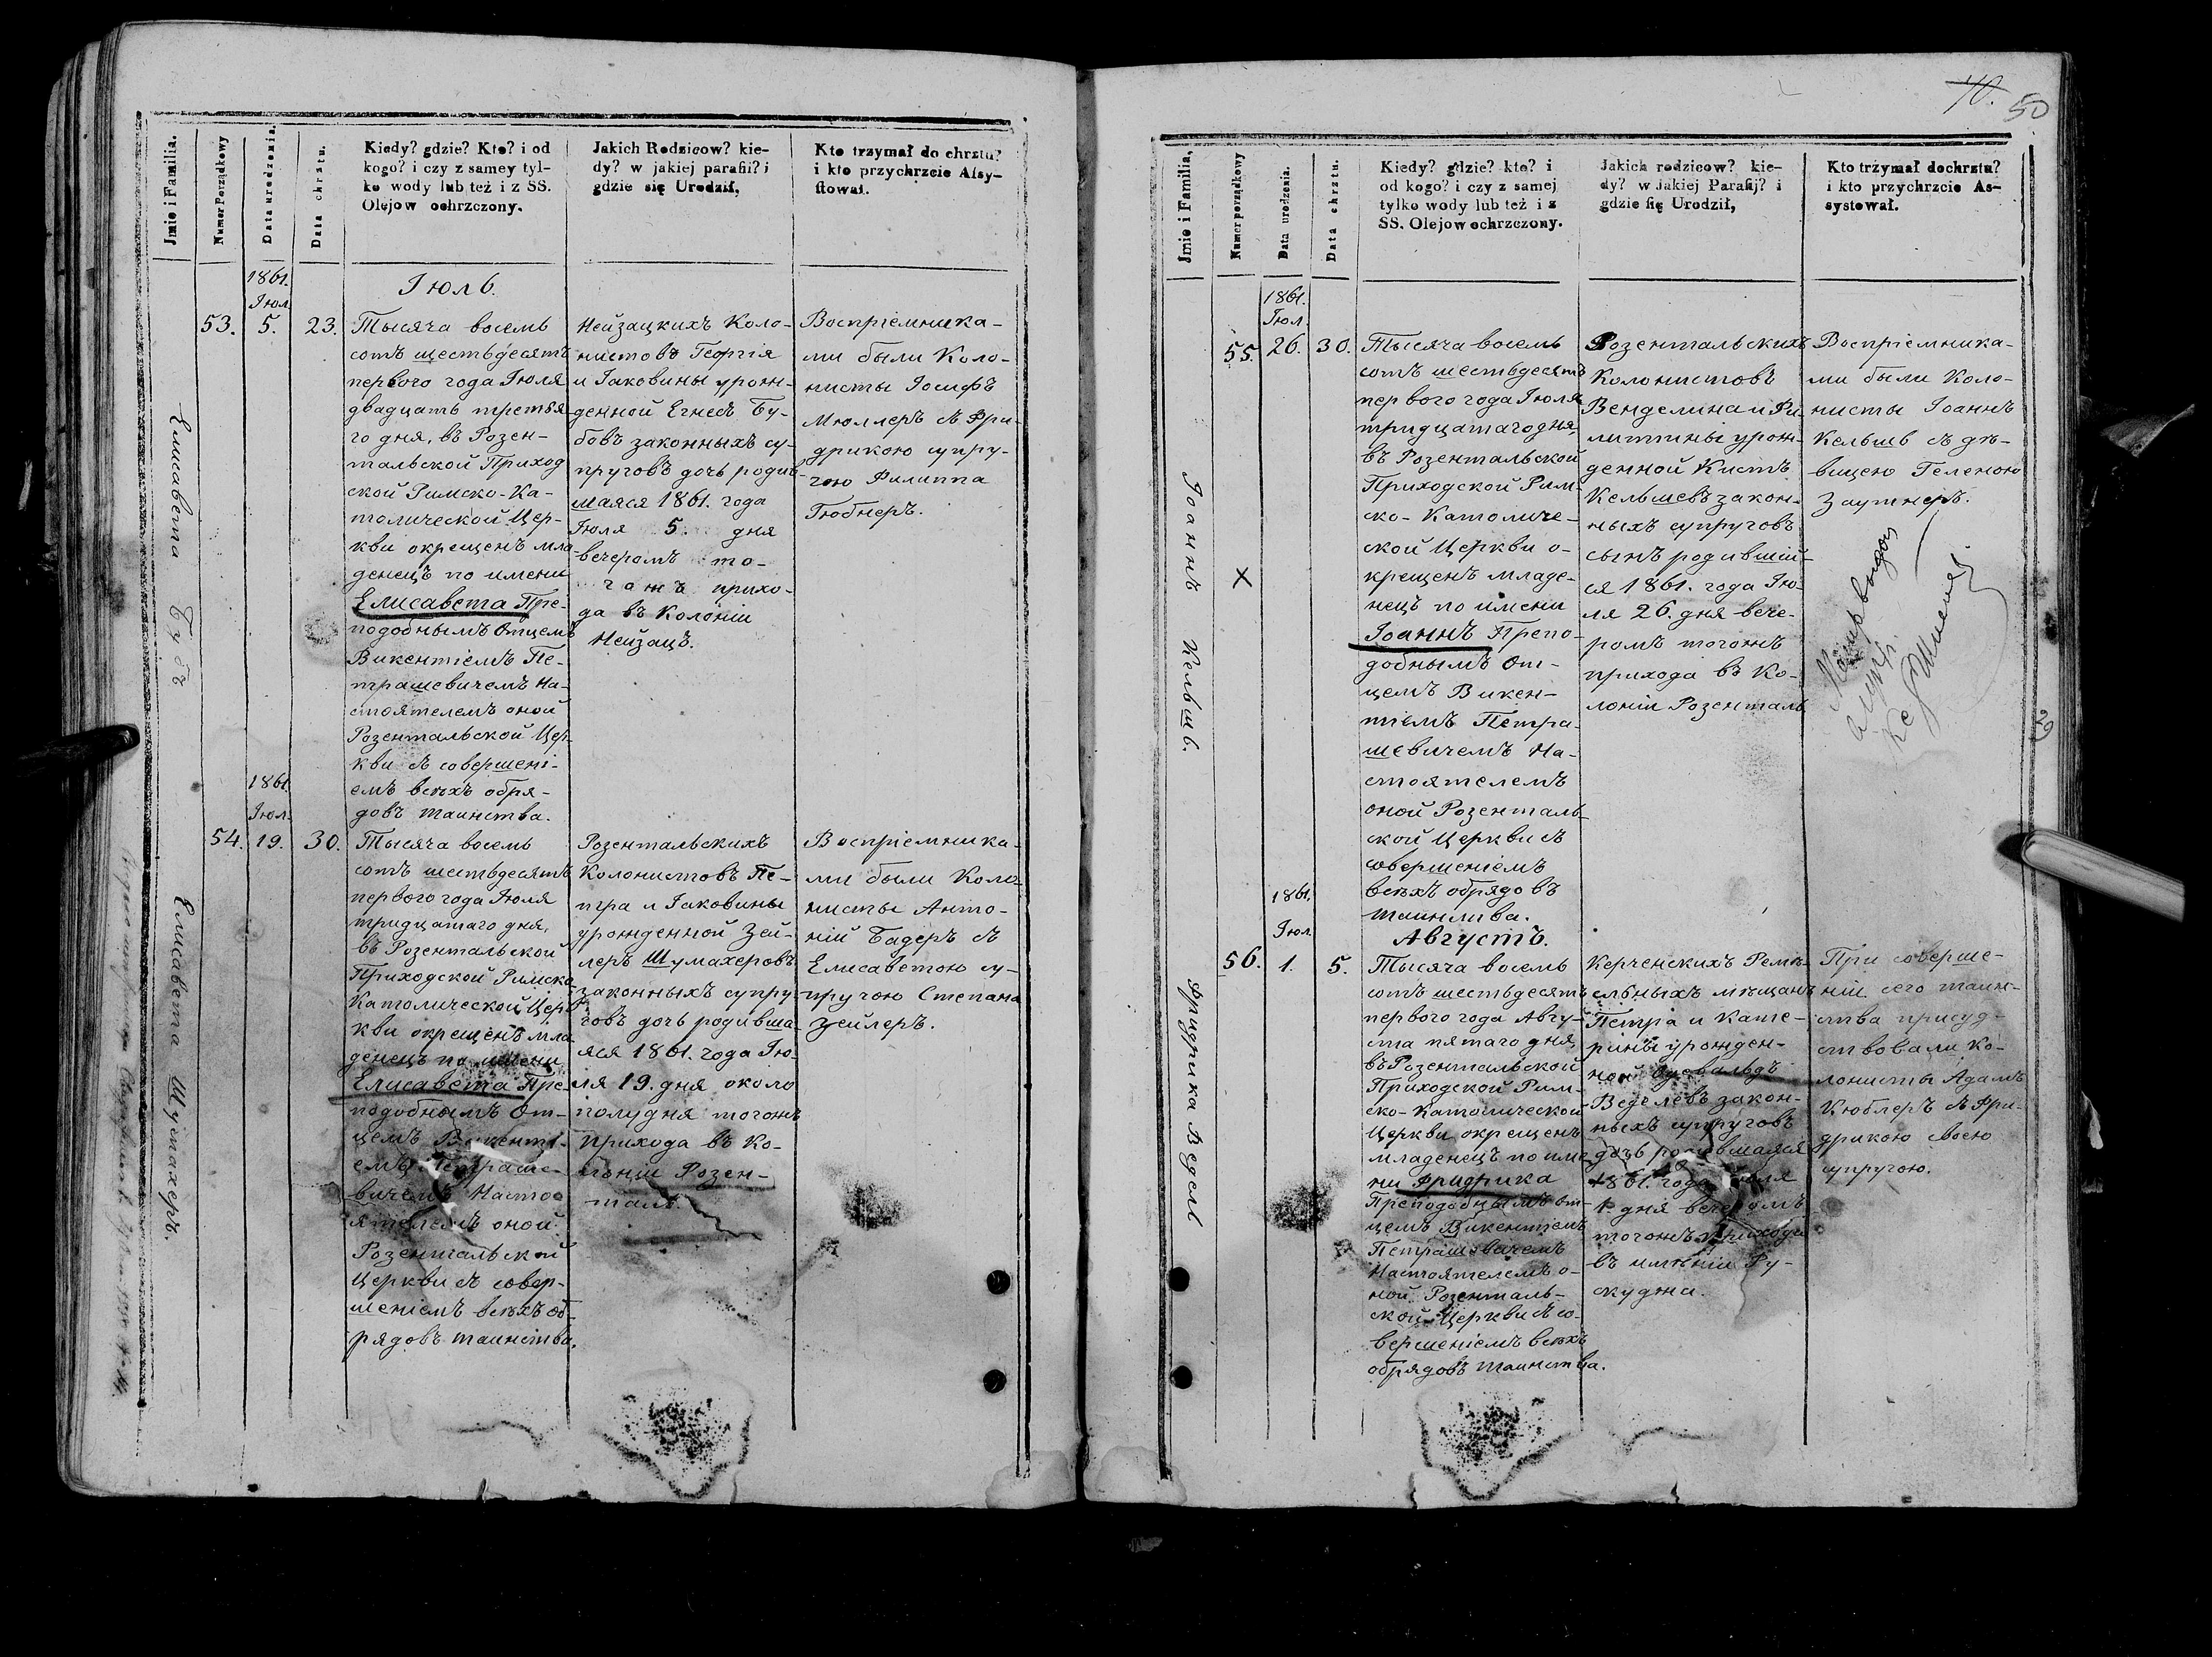 Jmie i Familia.
Numer Porządkowy
Data urodzenia.
Data chrztu.
Kiedy? gdzie? Kto? i od
kogo? i czy z samey tyl-
ko wody lub też i z SS.
Olejow ochrzczony.
Jakich Rodzicow? kie-
dy? w jakiej parafii? i
gdzie się Urodził,
Kto trzymał do chrztu?
i kto przychrzcie Assy-
stował.
Елисавета Бубъ
53.
1861.
Іюл.
5.
23.
Іюль.
Тысяча восемь
сотъ шестьдесятъ
первого года Іюля
двадцать третья-
го дня, въ Розен-
тальской Приход
ской Римско-Ка-
толической Цер-
кви окрещенъ мла
денецъ по имени
Елисавета Пре-
подобнымъ Отцемъ
Викентіемъ Пе-
трашевичемъ На-
стоятелемъ оной
Розентальской Цер-
кви съ совершені-
емъ всѣхъ обря-
довъ таинства.
Нейзацкихъ Коло-
нистовъ Георгія
и Іаковины урож-
денной Егнесъ Бу-
бовъ законныхъ су-
пруговъ дочь родив-
шаяся 1861. года
Іюля 5. дня
вечеромъ то-
гожъ прихо-
да въ Колоніи
Нейзацъ.
Воспріемника-
ми были Коло-
нисты Іосифъ
Мюллеръ съ Фри-
дрикою супру-
гою Филиппа
Гюбнеръ.
Елисавета Шумахеръ.
54.
1861.
Іюл.
19.
30.
Тысяча восемь
сотъ шестьдесятъ
первого года Іюля
тридцатаго дня,
въ Розентальской
Приходской Римско
Католической Цер-
кви окрещенъ мла
денецъ по имени
Елисавета Пре-
подобнымъ От-
цемъ Викенті-
емъ Петраше-
вичемъ Насто-
ятелемъ оной
Розентальской
Церкви съ совер-
шеніемъ всѣхъ об-
рядовъ таинства.
Розентальскихъ
Колонистовъ Пе-
тра и Іаковины
урожденной Зей-
леръ Шумахеровъ
законныхъ супру-
говъ дочь родивша-
яся 1861. года Ію-
ля 19. дня около
полудня тогожъ
прихода въ Ко-
лоніи Розен-
таль.
Воспріемника-
ми были Коло-
нисты Анто-
ній Бадеръ съ
Елисаветою су-
пругою Степана
Зейлеръ.
10.
50
Jmie i Familia,
Numer porządkowy
Data urodzenia.
Data chrztu.
Kiedy? gdzie? kto? i
od kogo? i czy z samej
tylko wody lub też i z
SS. Olejow ochrzczony.
Jakich rodzicow? kie-
dy? w Jakiej Parafij? i
gdzie się Urodził,
Kto trzymał dochrztu?
i kto przychrzcie As-
systował.
Іоаннъ Кельшъ.
55.
х
1861.
Іюл.
26.
30.
Тысяча восемь
сотъ шестьдесятъ
первого года Іюля
тридцатаго дня,
въ Розентальской
Приходской Рим-
ско-Католиче-
ской Церкви о-
крещенъ младе-
нецъ по имени
Іоаннъ Препо-
добнымъ От-
цемъ Викен-
тіемъ Петра-
шевичемъ На-
стоятелемъ
оной Розенталь-
ской Церкви съ
совершеніемъ
всѣхъ обрядовъ
таинства.
Розентальскихъ
Колонистовъ
Венделина и Фи-
липпины урож-
денной Кистъ
Кельшевъ закон-
ныхъ супруговъ
сынъ родившій-
ся 1861. года Ію-
ля 26. дня вече-
ромъ тогожъ
прихода въ Ко-
лоніи Розенталь
Воспріемника-
ми были Коло-
нисты Іоаннъ
Кельшъ съ дѣ-
вицею Геленою
Заутнеръ.
29
Фридрика Ведель
56.
1861.
Іюл.
1.
5.
Августъ.
Тысяча восемь
сотъ шестьдесятъ
первого года Авгу-
ста пятаго дня,
въ Розентальской
Приходской Рим-
ско-Католической
Церкви окрещенъ
младенецъ по име-
ни Фридрика
Преподобнымъ От-
цемъ Викентіемъ
Петрашевичемъ
Настоятелемъ о-
ной Розенталь-
ской Церкви съ со-
вершеніемъ всѣхъ
обрядовъ таинства.
Керченскихъ Реме-
сльныхъ мѣщанъ
Петра и Кате-
рины урожден-
ной Освальдъ
Веделевъ закон-
ныхъ супруговъ
дочь родившаяся
1861. года Іюля
1 дня вечеромъ
тогожъ прихода
въ имѣніи Фу-
скуджи.
При соверше-
ніи сего таин-
ства присуд-
ствовали Ко-
лонисты Адамъ
Кюблеръ съ Фри-
дрикою своею
супругою.